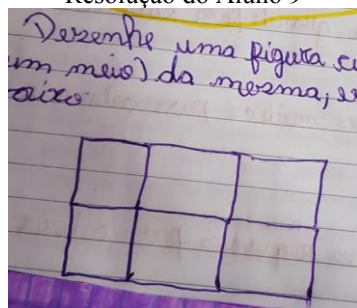 Resolução do Aluno 9
Desenhe uma figura cu
um meio) da mesma, es
aixo